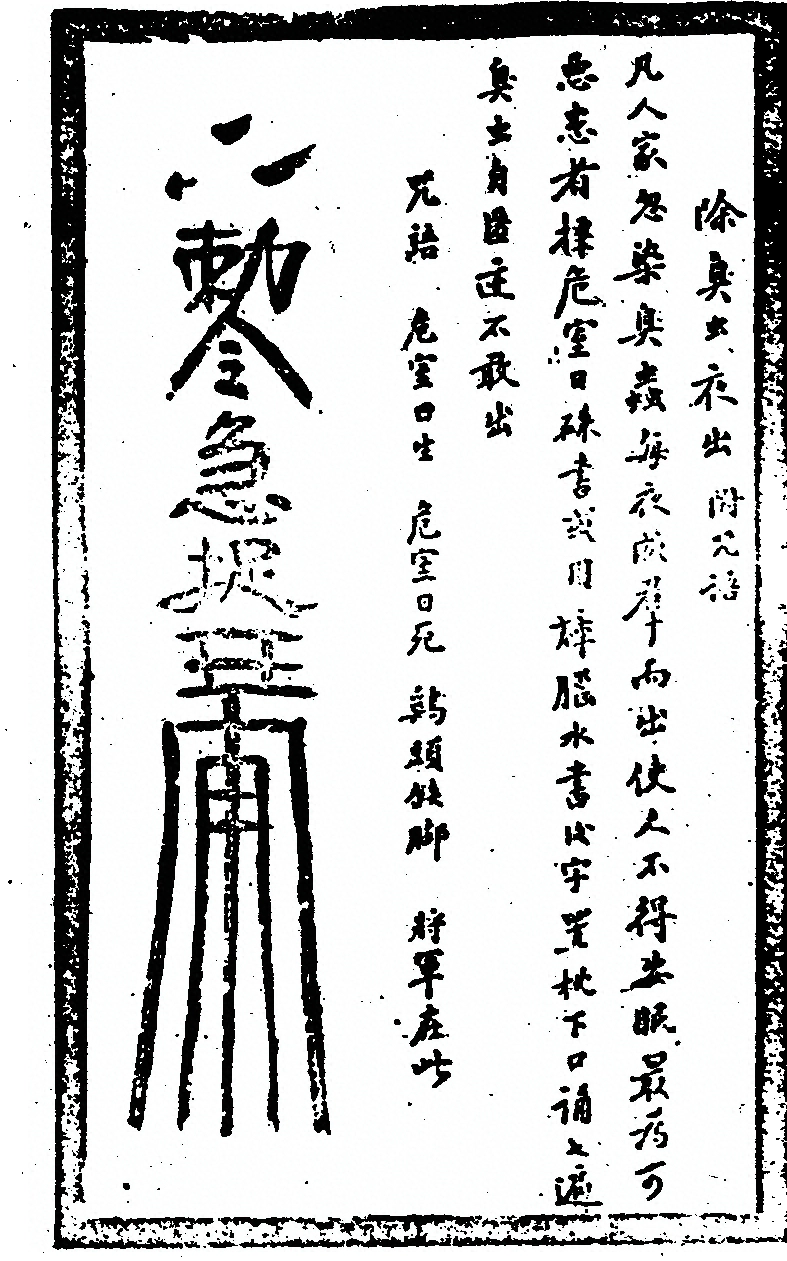 除臭虫夜出 附咒語
凡人家忽染臭蟲每夜成群而出使人不得安眠最為可
惡患者擇危室日硃書或用樟腦水書此字置枕下口誦七遍
臭虫自匿迹不敢出
咒語 危室日生 危室日死 鷄頭 脚 將軍在此
敕令急捉